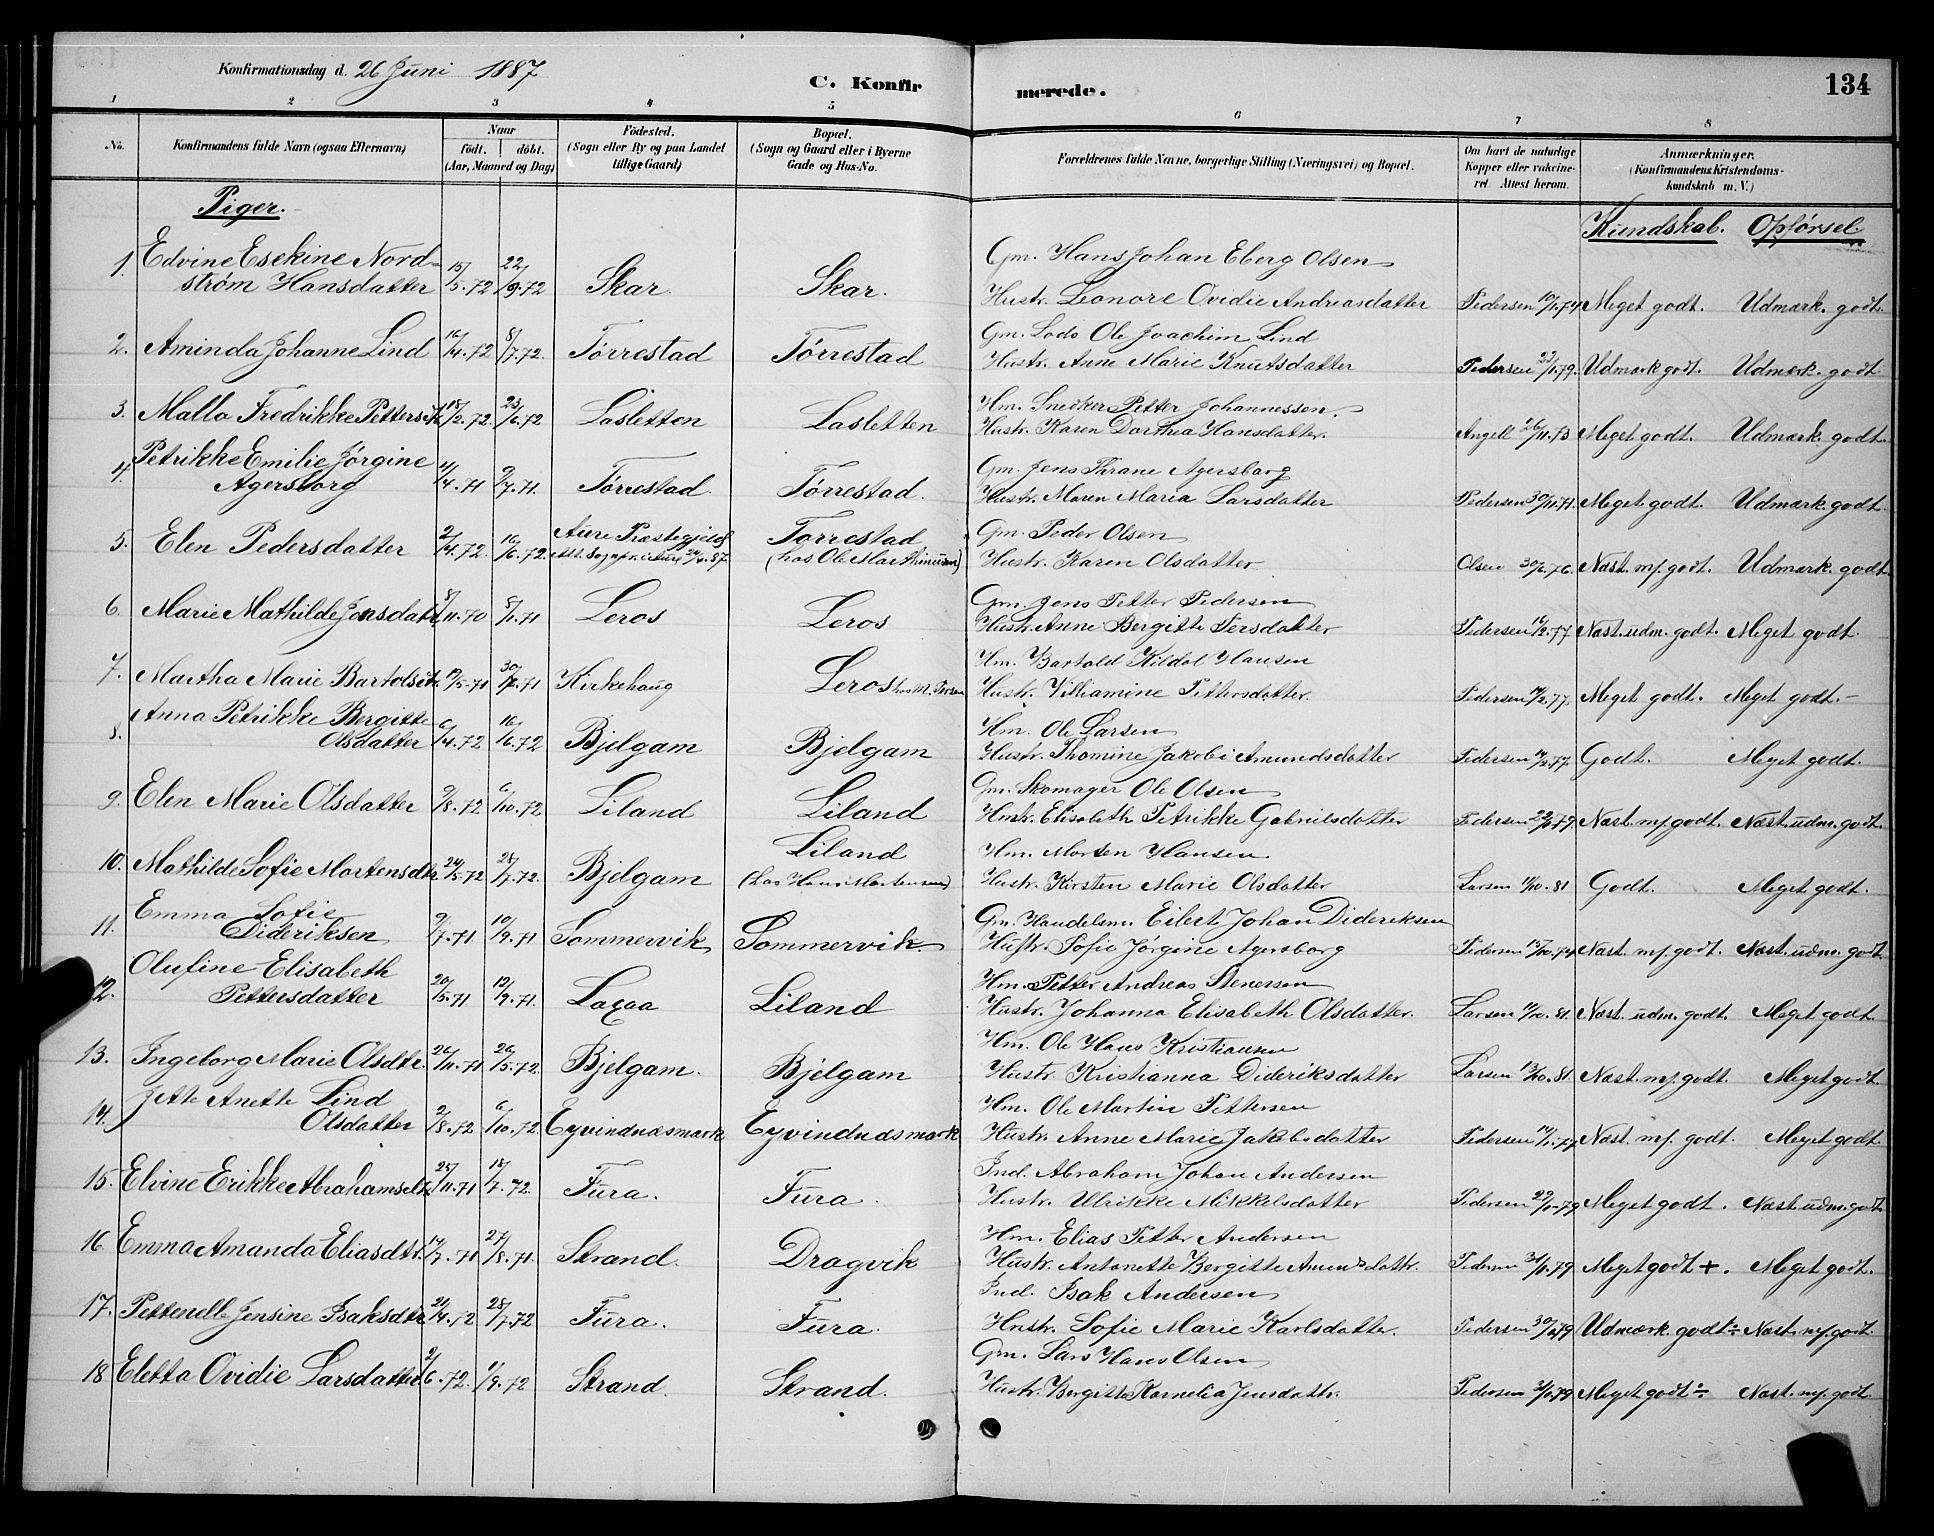 Konfirmationsdag d. 26 Juni 1887
C. Konfirmerede.
134
1 2 3 4 5 6 7 8
No.
Konfirmandens fulde Navn (ogsaa Efternavn)
Naar
födt. | döbt.
(Aar, Maaned og Dag)
Födested.
(Sogn eller By og paa Landet
tillige Gaard)
Bopæl.
(Sogn og Gaard eller i Byerne
Gade og Hus-No.
Forældrenes fulde Navne, borgerlige Stilling (Næringsvei) og Bopæl.
Om havt de naturlige
Kopper eller vakcine-
ret. Attest herom.
Anmærkninger.
(Konfirmandens Kristendoms-
kundskab m. V.)
Piger.
Kundskab. Opførsel.
1. Edvine Esekine Nord- Gm. Hans Johan Eberg Olsen
strøm Hansdatter 15/5.72 22/9.72 Skar. Skar. Hustr. Leonore Ovidie Andreasdatter Pedersen Meget godt. Udmærk. godt.
Gm. Lods Ole Joachim Lind
2. Aminda Johanne Lind 16/4.72 8/7.72. Tørrestad Tørrestad Hustr. Anne Marie Knutsdatter Pedersen Udmærk godt. Udmærk. godt.
Hm. Snedker Petter Johannessen.
3. Malla Fredrikke Pettersdtr 18/2.72. 23/6.72 Lasletten Lasletten Hustr. Karen Dorthea Hansdatter. Angell 26/11.73 Meget godt. Udmærk. godt.
4. Petrikke Emilie Jørgine Gm. Jens Thrane Agersborg
Agersborg 11/4.71 9/7.71. Tørrestad. Tørrestad. Hustr. Maren Maria Larsdatter Pedersen 30/11.71. Meget godt. Udmærk. godt.
Aure Præstegjeld Tørrestad Gm. Peder Olsen
5. Elen Pedersdatter 2/4.72. 16/6.72. Att. Sognepr. i Aure 24/4.87. (hos Ole Marthinusen) Hustr. Karen Olsdatter Olsen 30/6.76. Næst. m/. godt. Udmærk. godt
Gm. Jens Petter Pedersen
6. Marie Mathilde Jensdatt. 8/11.70 8/1.71 Leros Leros Hustr. Anne Bergitte Persdatter Pedersen 14/2.77 Næst. udm. godt. Meget godt.
Hm. Bartold Kildal Hansen
7. Martha Marie Bartolsdtr 19/5.71 30/7.71 Kirkehaug Leros hos M. Persen Hustr. Villiamine Pettersdatter. Pedersen 14/2.77. Meget godt. Meget godt.
8. Anna Petrikke Bergitte Hm. Ole Larsen
Olsdatter 6/4.72 16/6.72 Bjelgam Bjelgam Hustr. Thomine Jakobi Amundsdatter Pedersen 14/2.77. Godt. Meget godt.
Gm. Skomager Ole Olsen
9. Elen Marie Olsdatter 9/8.72 6/10.72 Liland Liland Hustr. Elisabeth Petrikke Gabrielsdatter Pedersen Næst. m/. godt. Næst. udm. godt.
Liland Hm. Morten Hansen.
10. Mathilde Sofie Mortensdtr 24/5.72 28/7.72. Bjelgam (hos Hans Mortensen) Hustr. Kirsten Marie Olsdatter Larsen 11/10.81 Godt. Meget godt.
11. Emma Sofie Gm. Handelsm. Eilert Johan Dideriksen
Dideriksen 9/7.71 10/9.71 Sommervik Sommervik Hustr. Sofie Jørgine Agersborg Pedersen Næst. m/. godt. Næst. udm. godt
12. Olufine Elisabeth Hm. Petter Andreas Stenersen
Pettersdatter 20/5.71 19/9.71. Laxaa Liland Hustr. Johanna Elisabeth Olsdatter. Larsen 11/10.81. Næst. udm. godt. Meget godt.
Hm. Ole Hans Kristiansen
13. Ingeborg Marie Olsdtr. 26/11.71 26/5.72. Bjelgam. Bjelgam Hustr. Kristianna Dideriksdatter Larsen 13/10.81. Næst. m/. godt. Meget godt.
14. Jette Anette Lind Hm. Ole Martin Pettersen
Olsdatter 2/8.72 6/10.72. Eyvindnæsmark Eyvindnæsmark Hustr. Anne Marie Jakobsdatter Pedersen Næst. m/. godt. Meget godt.
Ind. Abraham Johan Andersen
15. Elvine Erikke Abrahamsdtr 25/11.71 18/7.72. Fura. Fura. Hustr. Ulrikke Mikkelsdatter Pedersen Meget godt. Næst. udm. godt
Hm. Elias Petter Andersen
16. Emma Amanda Eliasdtr. 14/7.71 27/8.71. Strand. Dragvik Hustr. Antonette Bergitte Amundsdattr. Pedersen Meget godt +. Meget godt.
Ind. Isak Andersen
17. Pettenelle Jensine Isaksdtr 21/4.72 28/7.72 Fura. Fura. Hustr. Sofie Marie Karlsdatter. Pedersen Udmærk. godt ÷ Næst. m/. godt.
Gm. Lars Hans Olsen
18 Eletta Ovidie Larsdatter 2/6.72. 1/9.72 Strand. Strand. Hustr. Bergitte Kornelia Jensdattr. Pedersen Meget godt ÷. Næst. m/. godt.